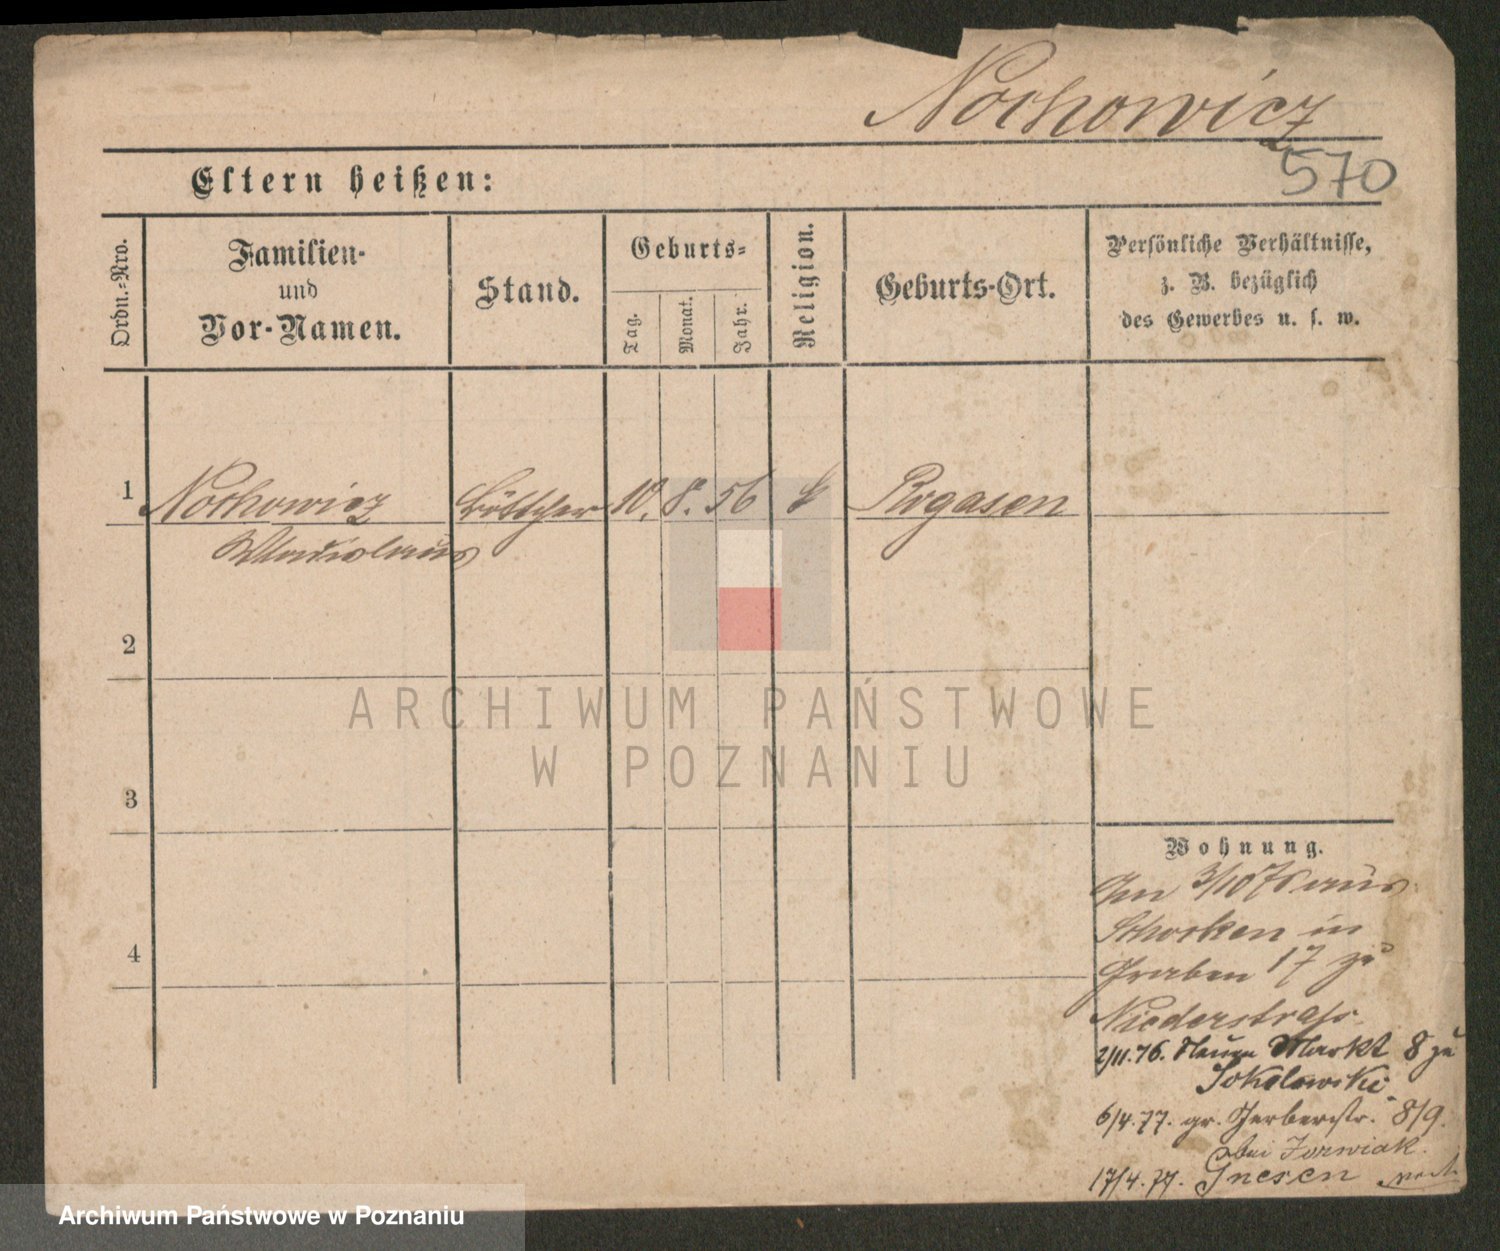 Nochowicz
570
Eltern heißen:
Ordn.-Nro.
Familien-
und
Vor-Namen.
Stand.
Geburts-
Tag.
Monat.
Jahr.
Religion.
Geburts-Ort.
Persönliche Verhältnisse,
z. B. bezüglich
des Gewerbes u. s. w.
1 Nochowicz Böttcher 10. 8. 56 k Rogasen
Wladislaus
2
3
4
Wohnung.
Am 3/10 76 aus
Schocken in
Graben 17 zu
Niederstrass
2/11.76. Neuen Markt 8 zu
Sokolowski.
6/4.77. gr. Gerberstr. 8/9.
bei
17/4.77. Gnesen
ARCHIWUM PAŃSTWOWE
W POZNANIU
Archiwum Państwowe w Poznaniu